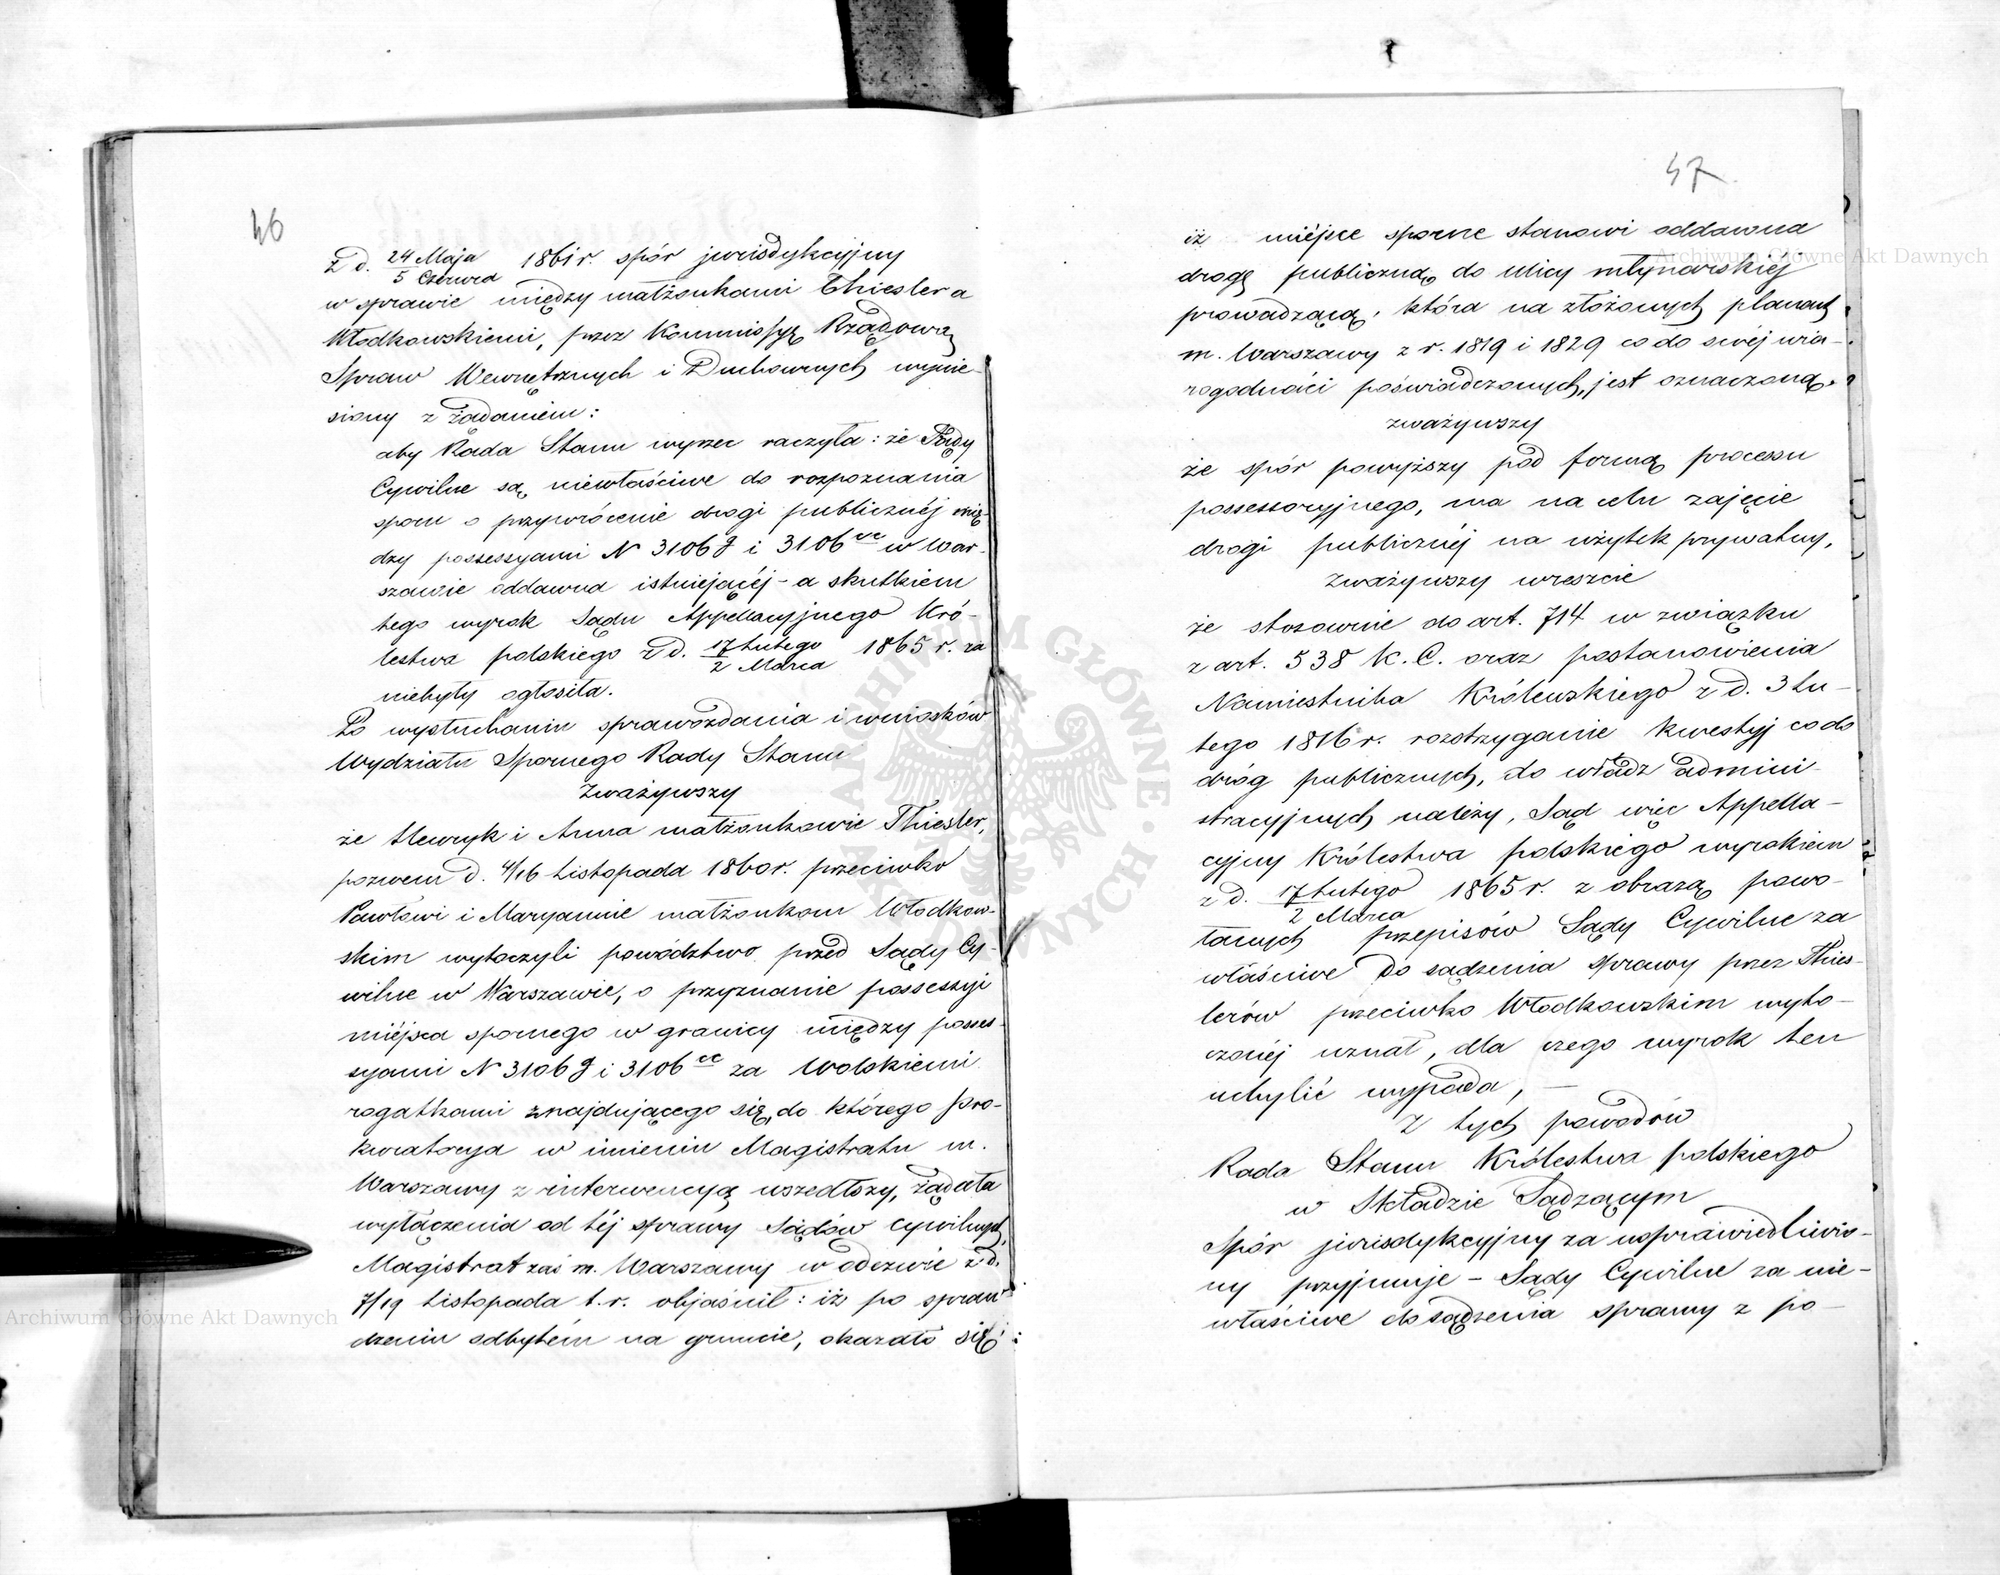 46
z d. 24 Maja / 5 Czerwca 1861 r. spór jurisdykcyjny
w sprawie między małżonkami Thiesler a
Włodkowskiemi, przez Kommissyę Rządową
Spraw Wewnętrznych i Duchownych wynie-
siony z żądaniem:
aby Rada Stanu wyrzec raczyła: że Sądy
Cywilne są niewłaściwe do rozpoznania
sporu o przywrócenie drogi publicznéj mię-
dzy possessyami N 3106 g i 3106 cc w War-
szawie oddawna istniejącéj - a skutkiem
tego wyrok Sądu Appellacyjnego Kró-
lestwa polskiego z d. 17 Lutego / 2 Marca 1865 r. za
niebyły ogłosiła.
Po wysłuchaniu sprawozdania i wniosków
Wydziału Spornego Rady Stanu
Zważywszy
że Henryk i Anna małżonkowie Thiesler,
pozwem d. 4/16 Listopada 1860 r. przeciwko
Pawłowi i Maryannie małżonkom Włodkow-
skim wytoczyli powództwo przed Sądy Cy-
wilne w Warszawie, o przyznanie possessyi
miéjsca spornego w granicy między posses-
syami N 3106 g i 3106 cc za Wolskiemi
rogatkami znajdującego się, do którego Pro-
kuratorya w imieniu Magistratu m.
Warszawy z interwencyą wszedłszy, żądała
wyłączenia od téj sprawy Sądów cywilnych,
Magistrat zaś m. Warszawy w odezwie z d.
7/19 Listopada t. r. objaśnił: iż po spraw-
dzeniu odbytém na gruncie, okazało się:
47
iż miéjsce sporne stanowi oddawna
drogę publiczną do ulicy młynarskiéj
prowadzącą, która na złożonych planach
m. Warszawy z r. 1819 i 1829 co do swéj wia-
rogodności poświadczonych, jest oznaczoną.
zważywszy
że spór powyższy pod formą processu
possessoryjnego, ma na celu zajęcie
drogi publicznéj na użytek prywatny,
Zważywszy wreszcie
że stosownie do art. 714 w związku
z art. 538 K. C. oraz postanowienia
Namiestnika Królewskiego z d. 3 Lu-
tego 1816 r. rozstrzyganie kwestyj co do
dróg publicznych, do władz admini-
stracyjnych należy, Sąd więc Appella-
cyjny Królestwa polskiego wyrokiem
z d. 17 Lutego / 2 Marca 1865 r. z obrazą powo-
łanych przepisów Sądy Cywilne za
właściwe do sądzenia sprawy przez Thies-
lerów przeciwko Włodkowskim wyto-
czonéj uznał, dla czego wyrok ten
uchylić wypada, —
Z tych powodów
Rada Stanu Królestwa polskiego
w Składzie Sądzącym
Spór jurisdykcyjny za usprawiedliwio-
ny przyjmuje - Sądy Cywilne za nie-
właściwe do sądzenia sprawy z po-
Archiwum Główne Akt Dawnych
Archiwum Główne Akt Dawnych
ARCHIWUM GŁÓWNE AKT DAWNYCH